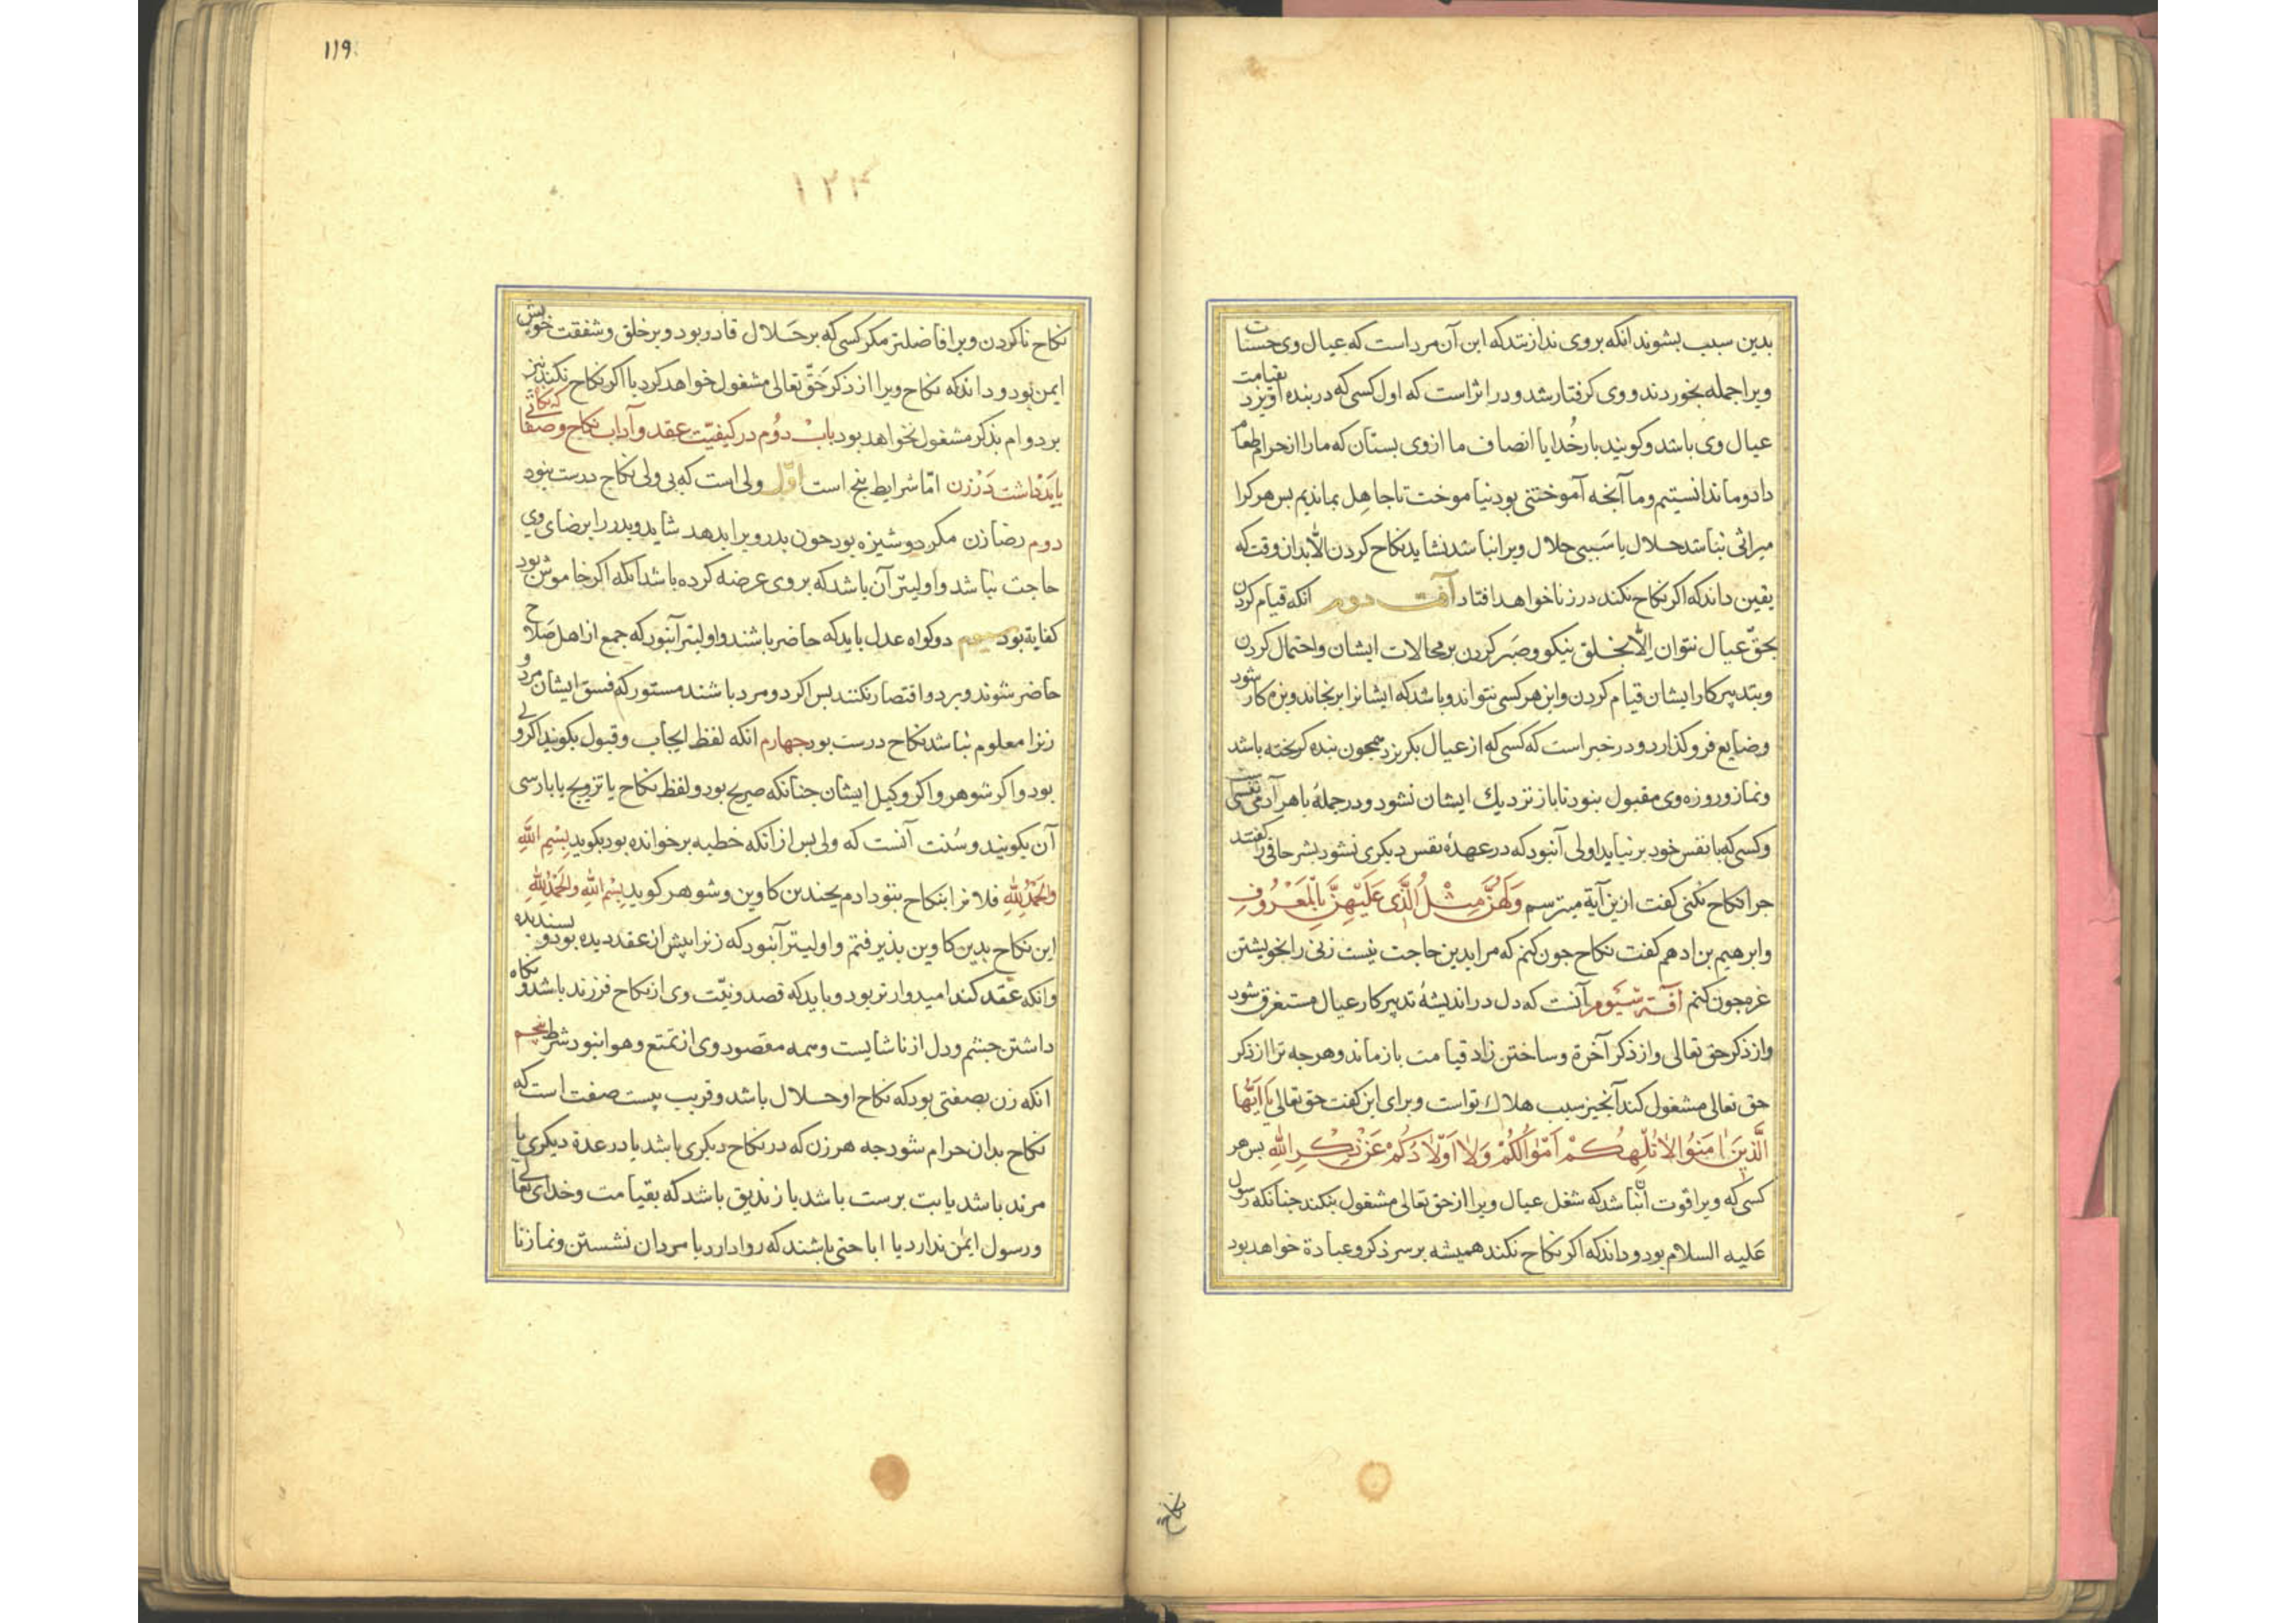 بدین سبب بشوند انکه بروی ندا زنند که این آن مرد است که عیال وی حسنات
ویرا جمله بخوردند و وی کرفتار شد و در اثر است که اول کسی که در بنده آویزد بقیامت
عیال وی باشد و کویند بار خُدایا انصاف ما از وی بستان که ما را از حرام طعام
داد و ما ندانستیم و ما آنجه آموختنی بود نیاموخت تا جاهل بماندیم بس هر کرا
میراثی نباشد حلال یا سَببی حلال ویرا نباشد نشاید نکاح کردن الا بدان وقت که
یقین داند که اکر نکاح نکند در زنا خواهد افتاد آفت دوم انکه قیام کردن
بحقّ عیال نتوان اِلّا بخلق نیکو و صَبر کردن بر محالات ایشان و احتمال کردن
و بتدبیر کار ایشان قیام کردن و این هر کسی نتواند و باشد که ایشانرا برنجاند و بزه کار شود
و ضایع فرو کذارد و در خبر است که کسی که از عیال بکریزد همجون بنده کریخته باشد
و نماز و روزه وی مقبول نبود تا باز نزدیك ایشان نشود و در جملهٔ با هر آدمی نفسی است
و کسی که با نفس خود بر نیاید اولی آنبود که در عهدهٔ نفس دیکری نشود بشر حافی را کفتند
جرا نکاح نکنی کفت ازین آیة میترسم وَلَهُنَّ مِثْلُ الَّذی عَلَیْهِنَّ بِالْمَعْرُوفِ
و ابرهیم بن ادهم کفت نکاح جون کنم که مرا بدین حاجت نیست زنی را بخویشتن
غره جون کنم آفَة سَیوم آنست که دل در اندیشهٔ تدبیر کار عیال مستغرق شود
و از ذکر حق تعالی و از ذکر آخرة و ساختن زاد قیامت باز ماند و هر جه ترا از ذکر
حق تعالی مشغول کند آنجیز سبب هلاك تو است و برای این کفت حق تعالی یا اَیُّهَا
الَّذینَ امَنُوا لا تُلْهِکُمْ اَمْوالُکُمْ وَلا اَوْلادُکُمْ عَنْ ذِکْرِ اللّٰهِ بس هر
کسی که ویرا قوت آن نباشد که شغل عیال ویرا از حق تعالی مشغول نکند جنانکه رسول
عَلیه السلام بود و داند که اکر نکاح نکند همیشه بر سر ذکر و عبادة خواهد بود
نکاح
۱۱۹
۱۲۴
نکاح ناکردن ویرا فاضلتر مکر کسی که بر حَلال قادر بود و بر خلق و شفقت خویش
ایمن بود و داند که نکاح ویرا از ذکر حَقّ تعالی مشغول خواهد کرد یا اکر نکاح نکند نیز
بر دوام بذکر مشغول نخواهد بود بابْ دوُم در کیفیّت عقد و آداب نکاح و صفاتی که نکاه
باید داشت دَرْ زن امّا شرایط پنج است اوّل ولی است که بی ولی نکاح درست نبود
دوم رضا زن مکر دوشیزه بود جون بدر ویرا بدهد شاید و بدر را برضای وی
حاجت نباشد و اولیتر آن باشد که بروی عرضه کرده باشد انکه اکر خاموش بود
کفایة بود سیم دو کواه عدل باید که حاضر باشند و اولیتر آنبود که جمع از اهل صَلاح
حاضر شوند و بر دو اقتصار نکنند بس اکر دو مرد باشند مستور که فسق ایشان مرد و
زنرا معلوم نباشد نکاح درست بود جهارم انکه لفظ ایجاب و قبول بکویند اکر ولی
بود و اکر شوهر و اکر وکیل ایشان جنانکه صریح بود و لفظ نکاح یا تزویج یا بارسی
آن بکویند و سُنت آنست که ولی بس از انکه خطبه برخوانده بود بکوید بِسْمِ اللّٰهِ
والحَمْدُ لِلّٰهِ فلانرا بنکاح بتو دادم بجندین کاوین و شوهر کوید بِسْمِ اللّٰهِ والحَمْدُ لِلّٰهِ
این نکاح بدین کاوین بذیرفتم و اولیتر آنبود که زنرا پیش از عقد دیده بود و بسندیده
و انکه عقد کند امیدوارتر بود و باید که قصد و نیّت وی از نکاح فرزند باشد و نکاه
داشتن جشم و دل از ناشایست و همه مقصود وی از تمتع و هوا نبود شرط پنجم
انکه زن بصفتی بود که نکاح او حلال باشد و قریب بیست صفت است که
نکاح بدان حرام شود جه هر زن که در نکاح دیکری باشد یا در عدة دیکری یا
مرتد باشد یا بت برست باشد یا زندیق باشد که بقیامت و خدای تعالی
و رسول ایمٰن ندارد یا اباحتی باشند که روا دارد با مردان نشستن و نماز نا